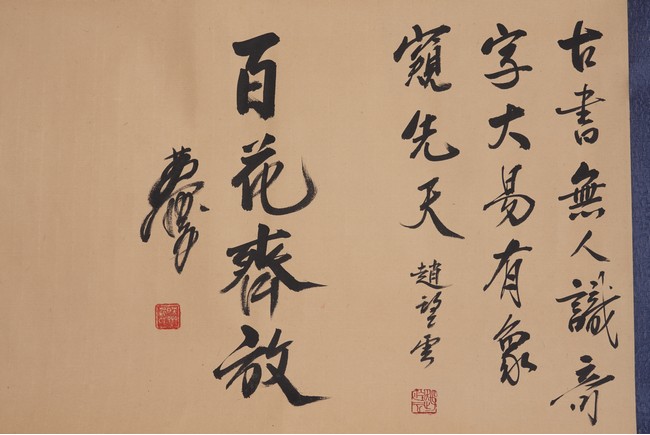 古書無人識奇
字大易有象
窺先天
趙望雲
百花齊放